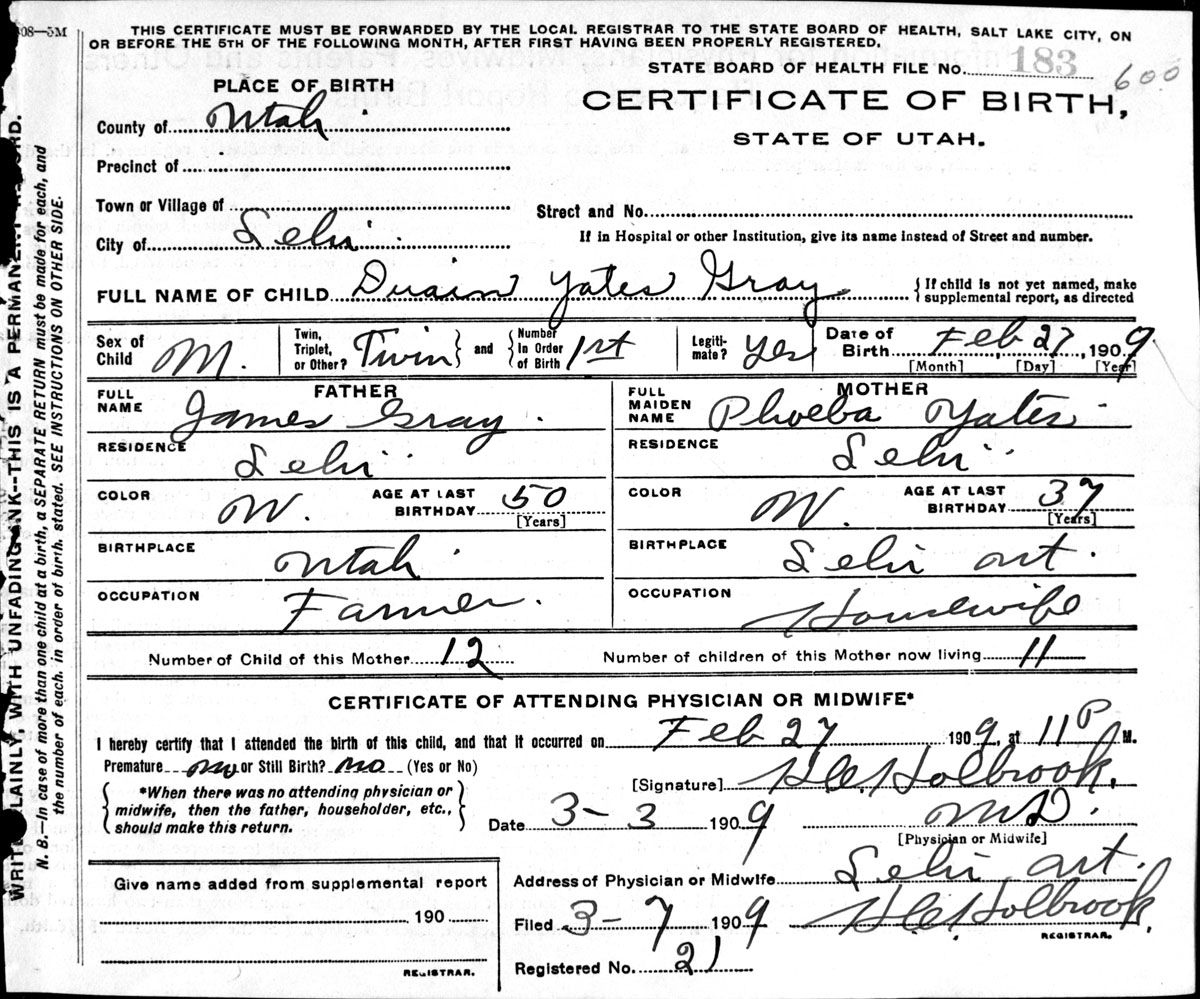 08—5M
THIS CERTIFICATE MUST BE FORWARDED BY THE LOCAL REGISTRAR TO THE STATE BOARD OF HEALTH, SALT LAKE CITY, ON
OR BEFORE THE 5TH OF THE FOLLOWING MONTH, AFTER FIRST HAVING BEEN PROPERLY REGISTERED.
STATE BOARD OF HEALTH FILE NO. 183 600
PLACE OF BIRTH
CERTIFICATE OF BIRTH,
STATE OF UTAH.
County of Utah
Precinct of
Town or Village of
Street and No.
City of Lehi
If in Hospital or other Institution, give its name instead of Street and number.
FULL NAME OF CHILD Duain Yates Gray { If child is not yet named, make
supplemental report, as directed
Sex of Child M. Twin, Triplet, or Other? Twin } and { Number In Order of Birth 1st Legiti-mate? Yes Date of Birth Feb 27, 1909.
[Month] [Day] [Year]
FATHER MOTHER
FULL NAME James Gray. FULL MAIDEN NAME Phoeba Yates.
RESIDENCE Lehi RESIDENCE Lehi
COLOR W. AGE AT LAST BIRTHDAY 50 [Years] COLOR W. AGE AT LAST BIRTHDAY 37 [Years]
BIRTHPLACE Utah BIRTHPLACE Lehi Ut.
OCCUPATION Farmer. OCCUPATION Housewife
Number of Child of this Mother 12 Number of children of this Mother now living 11
CERTIFICATE OF ATTENDING PHYSICIAN OR MIDWIFE*
I hereby certify that I attended the birth of this child, and that it occurred on Feb 27 1909, at 11 P M.
Premature no or Still Birth? no (Yes or No)
[Signature] H.C. Holbrook,
{ *When there was no attending physician or
midwife, then the father, householder, etc.,
should make this return. }
Date 3-3 1909 M.D.
[Physician or Midwife]
Address of Physician or Midwife Lehi Ut.
Give name added from supplemental report
190
REGISTRAR.
Filed 3-7 1909 H.C. Holbrook,
REGISTRAR.
Registered No. 21
WRITE PLAINLY, WITH UNFADING INK--THIS IS A PERMANENT RECORD.
N. B.—In case of more than one child at a birth, a SEPARATE RETURN must be made for each, and
the number of each, in order of birth, stated. SEE INSTRUCTIONS ON OTHER SIDE.